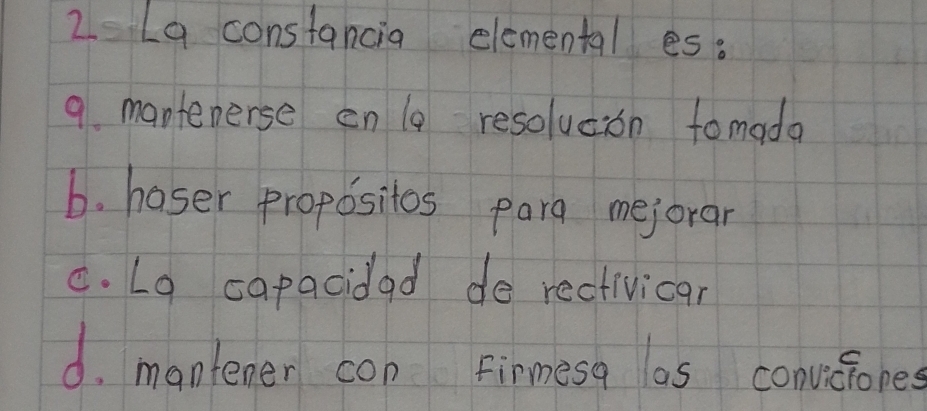 2. La constancia elemental es:
a. mantenerse en la resolución tomada
b. haser propósitos para mejorar
c. La capacidad de rectivicar
d. mantener con firmesa las convicciones